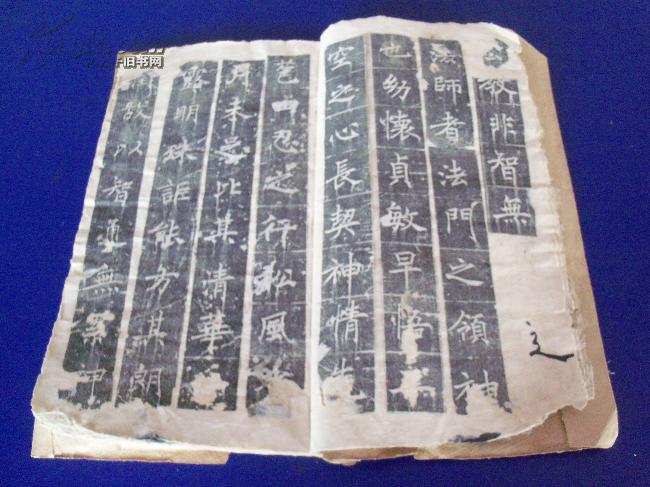 教非智無
法師者法門之領袖
也幼懷貞敏早悟
空之心長契神情先
苞四忍之行松風
月未足比其清華
露明珠詎能方其朗
故以智通無累
旧书网